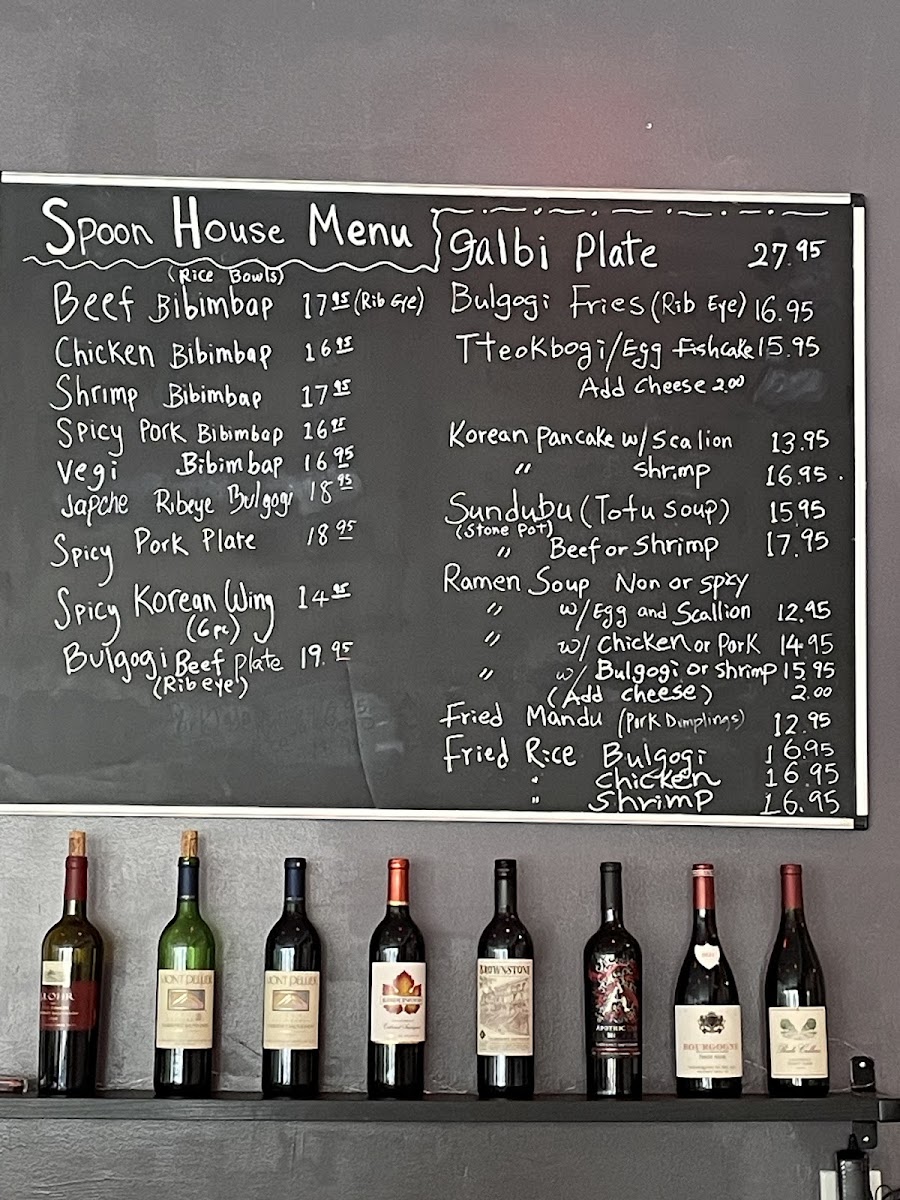 Spoon House Menu
(Rice Bowls)
Beef Bibimbap 17.95 (Rib Eye)
Chicken Bibimbap 16.95
Shrimp Bibimbap 17.95
Spicy Pork Bibimbap 16.95
Vegi Bibimbap 16.95
Japche Ribeye Bulgogi 18.95
Spicy Pork Plate 18.95
Spicy Korean Wing 14.95
(6pc)
Bulgogi Beef Plate 19.95
(Ribeye)
Galbi Plate 27.95
Bulgogi Fries (Rib Eye) 16.95
Tteokbogi/Egg Fishcake 15.95
Add Cheese 2.00
Korean Pancake w/ Scalion 13.95
" Shrimp 16.95.
Sundubu (Tofu Soup) 15.95
(Stone Pot)
" Beef or Shrimp 17.95
Ramen Soup Non or Spicy
" w/ Egg and Scallion 12.95
" w/ Chicken or Pork 14.95
" w/ Bulgogi or Shrimp 15.95
(Add cheese) 2.00
Fried Mandu (Pork Dimplings) 12.95
Fried Rice Bulgogi 16.95
" Chicken 16.95
" Shrimp 16.95
LOHR
MONT PELLIER
CABERNET SAUVIGNON
MONT PELLIER
Cabernet Sauvignon
BROWNSTONE
APOTHIC
BOURGOGNE
PINOT NOIR